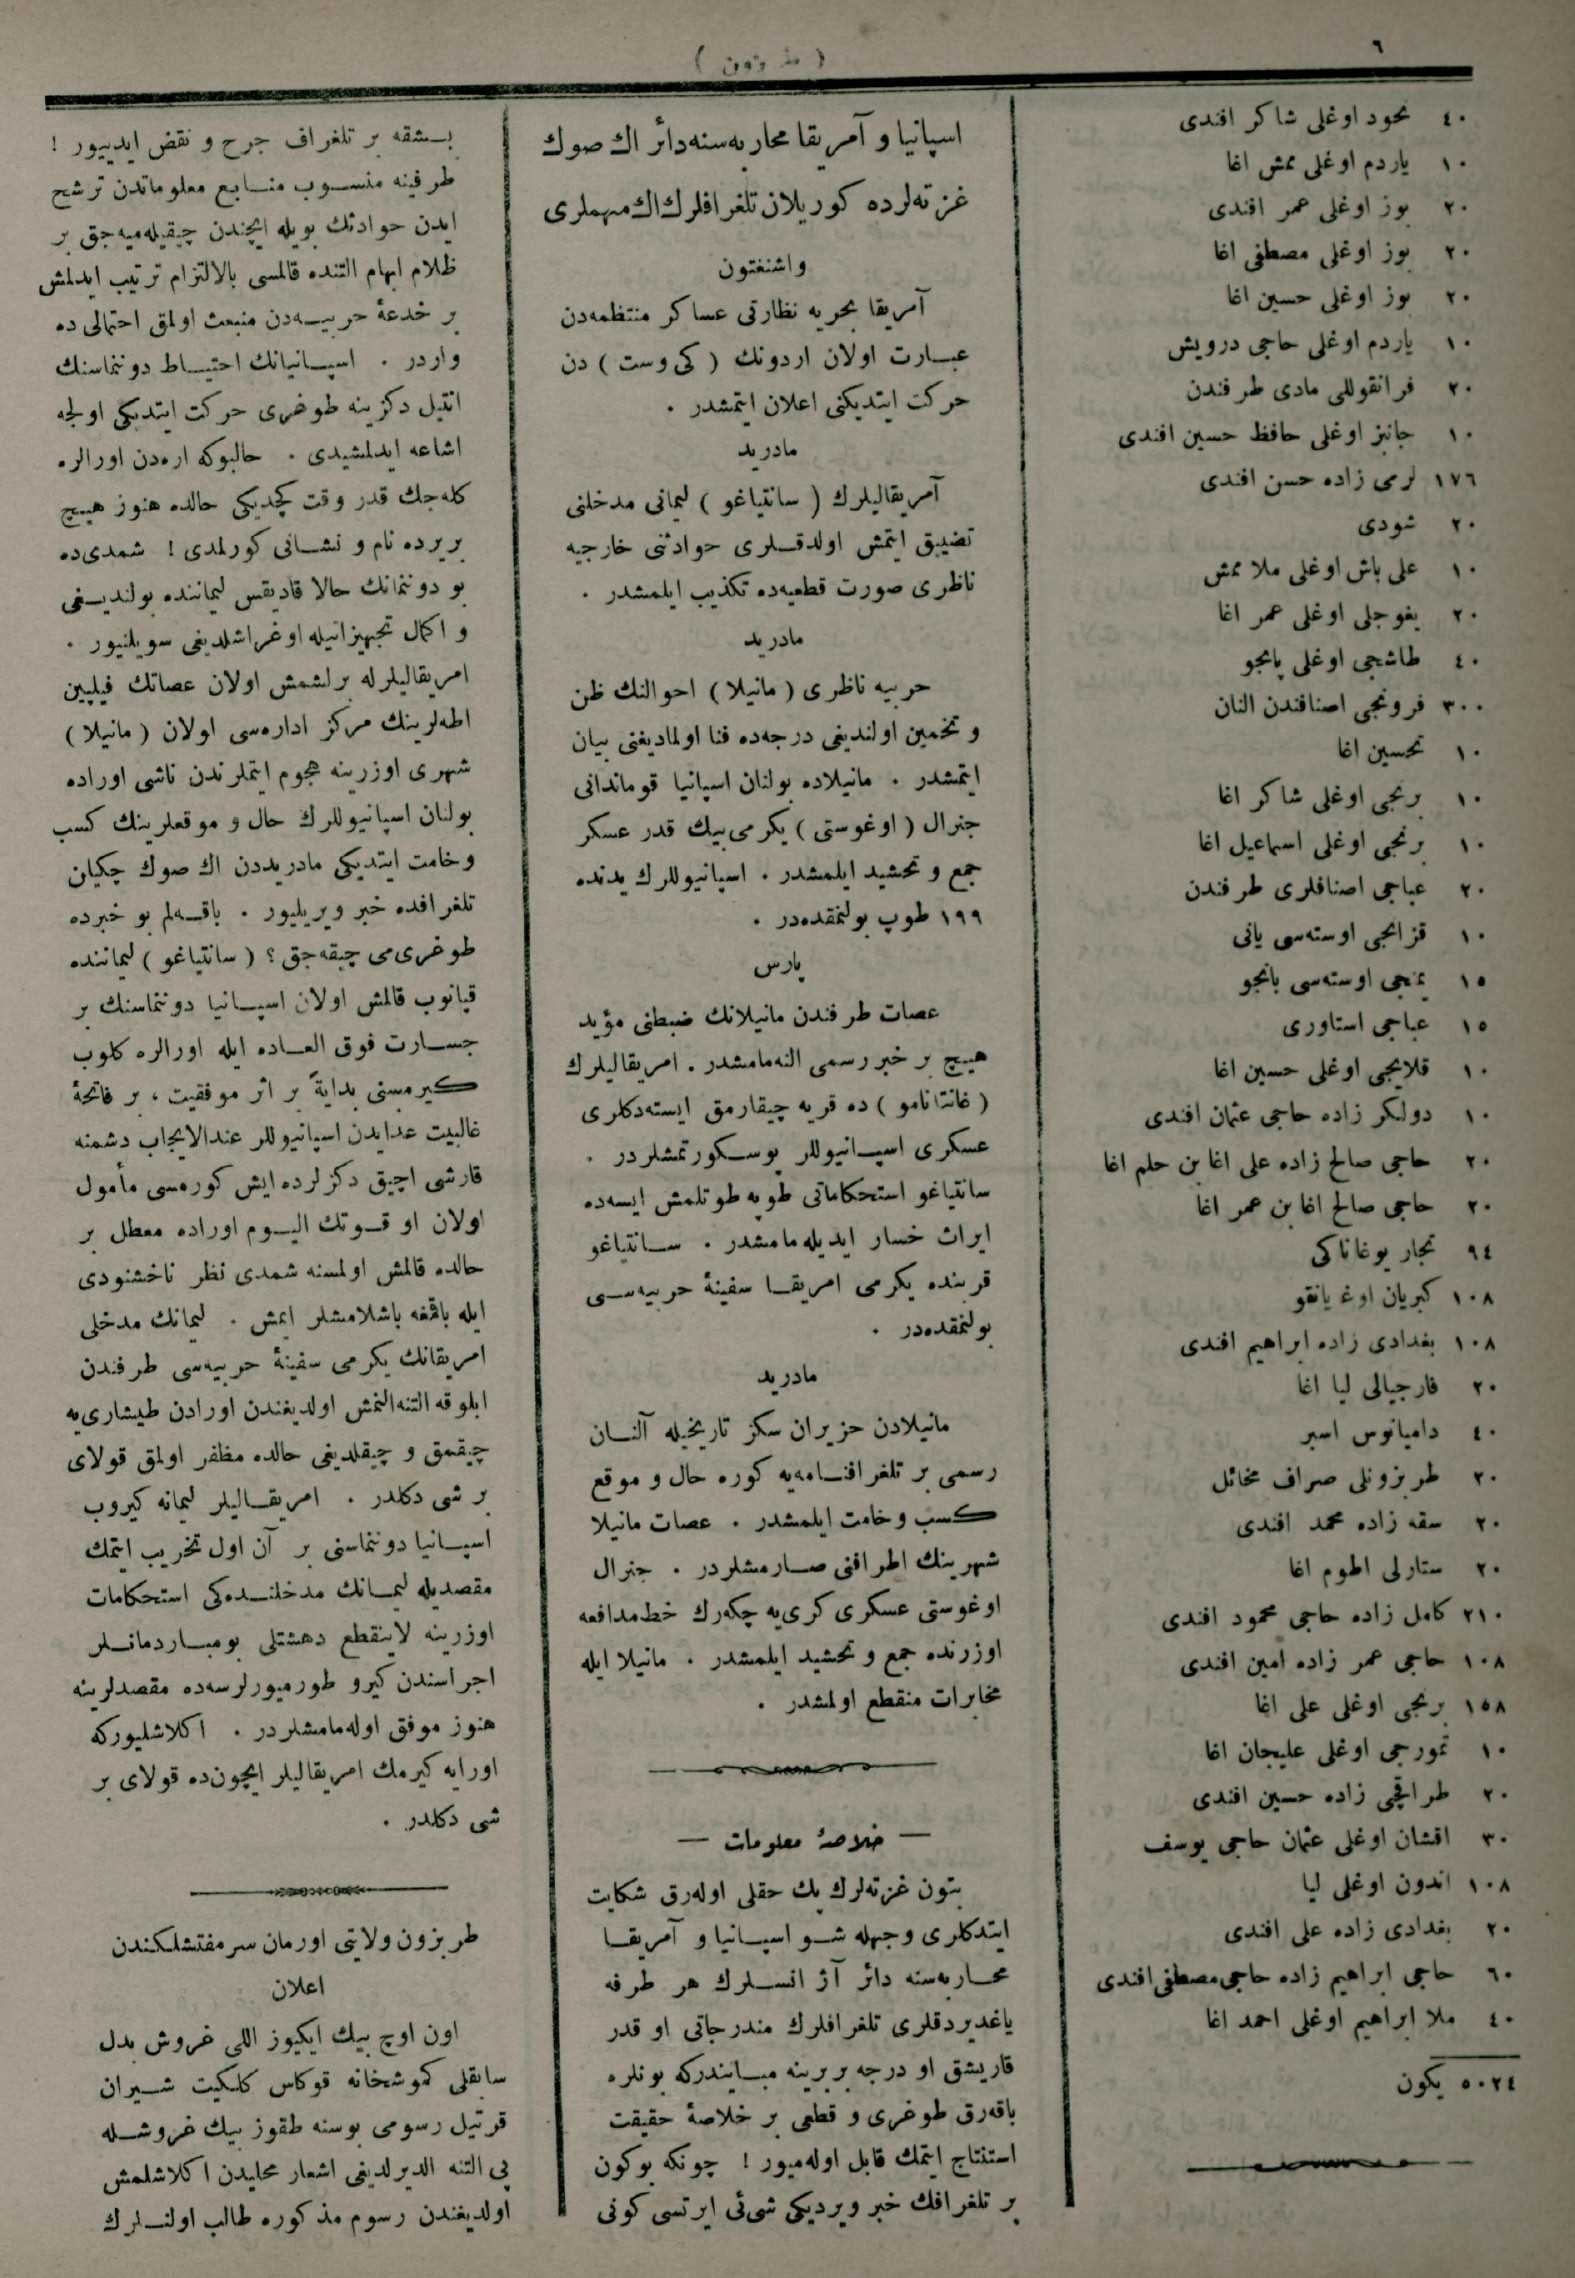 ٦
٤٠ محمود اوغلى شاكر افندى
١٠ ياردم اوغلى ممش اغا
٢٠ بوز اوغلى عمر افندى
٢٠ بوز اوغلى مصطفى اغا
٢٠ بوز اوغلى حسين اغا
١٠ ياردم اوغلى حاجى درويش
٢٠ فرانقوللى مادى طرفندن
١٠ جانبز اوغلى حافظ حسين افندى
١٧٦ لرمى زاده حسن افندى
٢٠ شودى
١٠ على باش اوغلى ملا ممش
٢٠ يغوجلى اوغلى عمر اغا
٤٠ طاشجى اوغلى پانجو
٣٠٠ فرونجى اصنافندن النان
١٠ تحسين اغا
١٠ برنجى اوغلى شاكر اغا
١٠ برنجى اوغلى اسماعيل اغا
٢٠ عباجى اصنافلرى طرفندن
١٠ قزانجى اوسته‌سى يانى
١٥ يمنجى اوسته‌سى بانجو
١٥ عباجى استاورى
١٠ قلايجى اوغلى حسين اغا
١٠ دولكر زاده حاجى عثمان افندى
٢٠ حاجى صالح زاده على اغا بن حلم اغا
٢٠ حاجى صالح اغا بن عمر اغا
٩٤ تجار يوغاناكى
١٠٨ كبريان اوغ يانقو
١٠٨ بغدادى زاده ابراهيم افندى
٢٠ فارجيالى ليا اغا
٤٠ داميانوس اسبر
٢٠ طربزونلى صراف مخائل
٢٠ سقه زاده محمد افندى
٢٠ ستارلى اطوم اغا
٢١٠ كامل زاده حاجى محمود افندى
١٠٨ حاجى عمر زاده امين افندى
١٥٨ برنجى اوغلى على اغا
١٠ تمورجى اوغلى عليجان اغا
٢٠ طراقجى زاده حسين افندى
٣٠ اقشان اوغلى عثمان حاجى يوسف
١٠٨ اندون اوغلى ليا
٢٠ بغدادى زاده على افندى
٦٠ حاجى ابراهيم زاده حاجى مصطفى افندى
٤٠ ملا ابراهيم اوغلى احمد اغا
٥٠٢٤ يكون
اسپانيا و آمريقا محاربه‌سنه دائر اك صوك
غزته‌لرده كوريلان تلغرافلرك اك مهملرى
واشنغتون
آمريقا بحريه نظارتى عساكر منتظمه‌دن
عبارت اولان اردونك ( كى وست ) دن
حركت ايتديكنى اعلان ايتمشدر .
مادريد
آمريقاليلرك ( سانتياغو ) ليمانى مدخلنى
تضييق ايتمش اولدقلرى حوادثنى خارجيه
ناظرى صورت قطعيه‌ده تكذيب ايلمشدر .
مادريد
حربيه ناظرى ( مانيلا ) احوالنك ظن
و تخمين اولنديغى درجه‌ده فنا اولماديغنى بيان
ايتمشدر . مانيلاده بولنان اسپانيا قوماندانى
جنرال ( اوغوستى ) يكرمى بيك قدر عسكر
جمع و تحشيد ايلمشدر . اسپانيوللرك يدنده
١٩٩ طوپ بولنمقده‌در .
پارس
عصات طرفندن مانيلانك ضبطنى مؤيد
هيچ بر خبر رسمى النه‌مامشدر . امريقاليلرك
( غانتانامو ) ده قريه چيقارمق ايسته‌دكلرى
عسكرى اسپانيوللر پوسكورتمشلردر .
سانتياغو استحكاماتى طوپه طوتلمش ايسه‌ده
ايراث خسار ايديله‌مامشدر . سانتياغو
قربنده يكرمى امريقا سفينهٔ حربيه‌سى
بولنمقده‌در .
مادريد
مانيلادن حزيران سكز تاريخيله آلنان
رسمى بر تلغرافنامه‌يه كوره حال و موقع
كسب وخامت ايلمشدر . عصات مانيلا
شهرينك اطرافنى صارمشلردر . جنرال
اوغوستى عسكرى كرى‌يه چكه‌رك خط مدافعه
اوزرنده جمع و تحشيد ايلمشدر . مانيلا ايله
مخابرات منقطع اولمشدر .
— خلاصهٔ معلومات —
بتون غزته‌لرك پك حقلى اوله‌رق شكايت
ايتدكلرى وجهله شو اسپانيا و آمريقا
محاربه‌سنه دائر آژانسلرك هر طرفه
ياغديردقلرى تلغرافلرك مندرجاتى او قدر
قاريشق او درجه بربرينه مبايندركه بونلره
باقه‌رق طوغرى و قطعى بر خلاصهٔ حقيقت
استنتاج ايتمك قابل اوله‌ميور ! چونكه بوكون
بر تلغرافك خبر ويرديكى شئى ايرتسى كونى
بشقه بر تلغراف جرح و نقض ايدييور !
طرفينه منسوب منابع معلوماتدن ترشح
ايدن حوادثك بويله ايچندن چيقيله‌ميه‌جق بر
ظلام ابهام التنده قالمسى بالالتزام ترتيب ايدلمش
بر خدعهٔ حربيه‌دن منبعث اولمق احتمالى ده
واردر . اسپانيانك احتياط دوننماسنك
انتيل دكزينه طوغرى حركت ايتديكى اولجه
اشاعه ايدلمشيدى . حالبوكه اره‌دن اورالره
كله‌جك قدر وقت كچديكى حالده هنوز هيچ
بريرده نام و نشانى كورلمدى ! شمدى‌ده
بو دوننمانك حالا قاديقس ليماننده بولنديغى
و اكمال تجهيزاتيله اوغراشلديغى سويلنيور .
امريقاليلرله برلشمش اولان عصاتك فيليپين
اطه‌لرينك مركز اداره‌سى اولان ( مانيلا )
شهرى اوزرينه هجوم ايتملرندن ناشى اوراده
بولنان اسپانيوللرك حال و موقعلرينك كسب
وخامت ايتديكى مادريددن اك صوك چكيلن
تلغرافده خبر ويريليور . باقه‌لم بو خبرده
طوغرى‌مى چيقه‌جق ؟ ( سانتياغو ) ليماننده
قپانوب قالمش اولان اسپانيا دوننماسنك بر
جسارت فوق العاده ايله اورالره كلوب
كيرمسنى بدايةً بر اثر موفقيت ، بر فاتحهٔ
غالبيت عدايدن اسپانيوللر عندالايجاب دشمنه
قارشى اچيق دكزلرده ايش كورمسى مأمول
اولان او قوتك اليوم اوراده معطل بر
حالده قالمش اولمسنه شمدى نظر ناخشنودى
ايله باقمغه باشلامشلر ايمش . ليمانك مدخلى
امريقانك يكرمى سفينهٔ حربيه‌سى طرفندن
ابلوقه التنه النمش اولديغندن اورادن طيشارى‌يه
چيقمق و چيقلديغى حالده مظفر اولمق قولاى
بر شى دكلدر . امريقاليلر ليمانه كيروب
اسپانيا دوننماسنى بر آن اول تخريب ايتمك
مقصديله ليمانك مدخلنده‌كى استحكامات
اوزرينه لاينقطع دهشتلى بومباردمانلر
اجراسندن كيرو طورميورلرسه‌ده مقصدلرينه
هنوز موفق اوله‌مامشلردر . اكلاشليوركه
اورايه كيرمك امريقاليلر ايچون‌ده قولاى بر
شى دكلدر .
طربزون ولايتى اورمان سرمفتشلكندن
اعلان
اون اوچ بيك ايكيوز اللى غروش بدل
سابقلى كموشخانه قوكاس كلكيت شيران
قرتيل رسومى بوسنه طقوز بيك غروشله
پى التنه الديرلديغى اشعار محليدن اكلاشلمش
اولديغندن رسوم مذكوره طالب اولنلرك